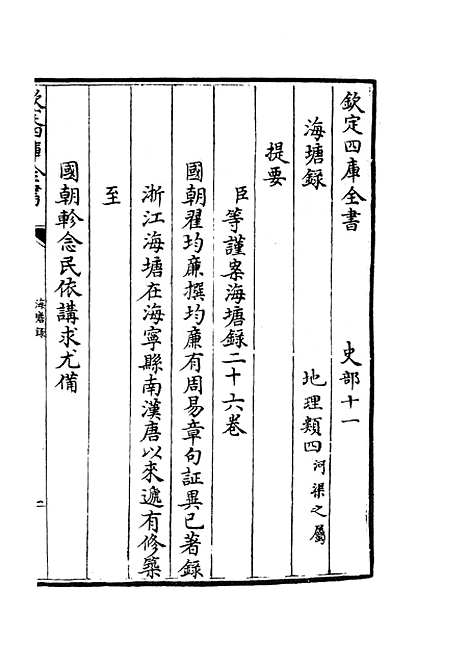 欽定四庫全書 史部十一
海塘録 地理類四河渠之屬
提要
臣等謹案海塘録二十六卷
國朝翟均廉撰均廉有周易章句証異已著録
浙江海塘在海寧縣南漢唐以來遞有修築
至
國朝軫念民依講求尤備
欽定四庫全書
海塘録